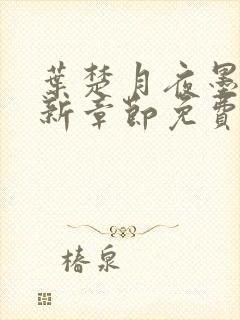 葉楚月夜墨
新章節免費
椿泉